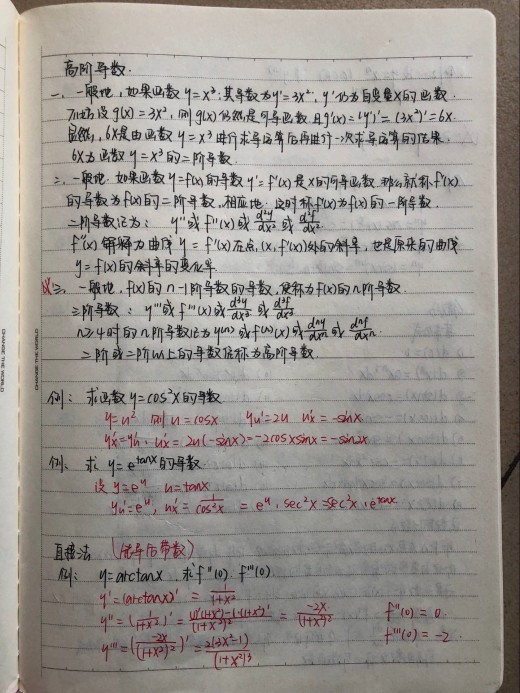 高阶导数.
一、一般地,如果函数 y=x³,其导数为y'=3x², y'仍为自变量x的函数.
不妨设 g(x)=3x², 则g(x)仍然是可导函数且g'(x)=(y')'=(3x²)'=6x.
显然,6x是由函数 y=x³ 进行求导运算后再进行一次求导运算的结果.
6x为函数 y=x³ 的二阶导数.
二、一般地.如果函数y=f(x)的导数y'=f'(x)是x的可导函数.那么就称f'(x)
的导数为f(x)的二阶导数,相应地.这时称f'(x)为f(x)的一阶导数.
二阶导数记为: y''或f''(x)或d²y/dx²或d²f/dx².
f''(x)解释为曲线 y=f'(x)在点(x,f'(x))处的斜率,也是原来的曲线
y=f(x)的斜率的变化率.
三、一般地,f(x)的n-1阶导数的导数,便称为f(x)的n阶导数.
三阶导数: y'''或f'''(x)或d³y/dx³或d³f/dx³
n≥4时的n阶导数记为y⁽ⁿ⁾或f⁽ⁿ⁾(x)或dⁿy/dxⁿ或dⁿf/dxⁿ.
二阶或二阶以上的导数统称为高阶导数.
例: 求函数y=cos²x的导数
y=u² 则u=cosx yu'=2u ux'=-sinx
yx'=yu'·ux'=2u(-sinx)=-2cosxsinx=-sin2x
例: 求 y=e^tanx的导数
设 y=e^u u=tanx
yu'=e^u, ux'=1/cos²x =e^u·sec²x=sec²x·e^tanx
直接法 (先导后带数)
例: y=arctanx.求f''(0).f'''(0).
y'=(arctanx)'=1/(1+x²)
y''=(1/(1+x²))'=(1)'(1+x²)-1·(1+x²)'/(1+x²)²=-2x/(1+x²)² f''(0)=0.
y'''=(-2x/(1+x²)²)'=2(3x²-1)/(1+x²)³ f'''(0)=-2
CHANGE THE WORLD
CHANGE THE WORLD